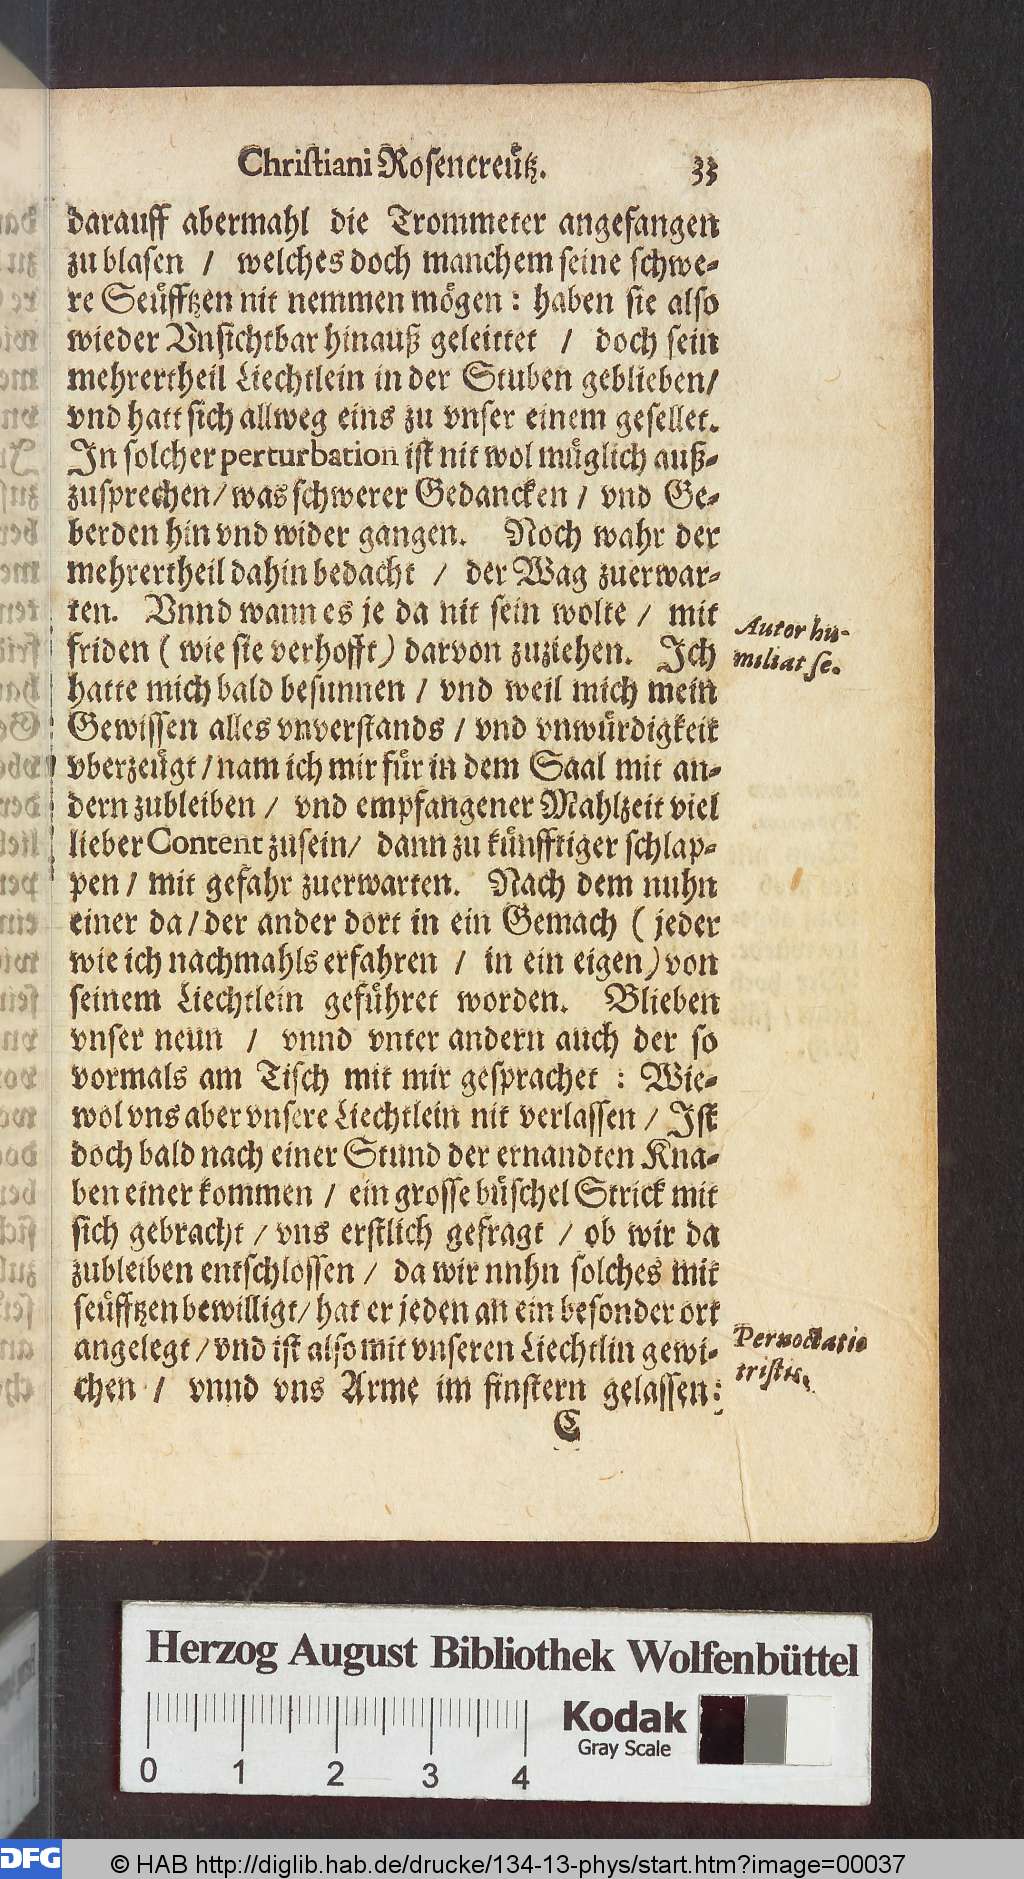 Christiani Rosencreütz. 33
darauff abermahl die Trommeter angefangen
zu blasen / welches doch manchem seine schwe-
re Seüfftzen nit nemmen mögen : haben sie also
wieder Vnsichtbar hinauß geleittet / doch sein
mehrertheil Liechtlein in der Stuben geblieben/
vnd hatt sich allweg eins zu vnser einem gesellet.
In solcher perturbation ist nit wol müglich auß-
zusprechen/ was schwerer Gedancken / vnd Ge-
berden hin vnd wider gangen. Noch wahr der
mehrertheil dahin bedacht / der Wag zuerwar-
ten. Vnnd wann es je da nit sein wolte / mit
friden ( wie sie verhofft) darvon zuziehen. Ich
hatte mich bald besunnen / vnd weil mich mein
Gewissen alles vnverstands / vnd vnwürdigkeit
vberzeügt/ nam ich mir für in dem Saal mit an-
dern zubleiben / vnd empfangener Mahlzeit viel
lieber Content zusein/ dann zu künfftiger schlap-
pen / mit gefahr zuerwarten. Nach dem nuhn
einer da/ der ander dort in ein Gemach ( jeder
wie ich nachmahls erfahren / in ein eigen) von
seinem Liechtlein geführet worden. Blieben
vnser neun / vnnd vnter andern auch der so
vormals am Tisch mit mir gesprachet : Wie-
wol vns aber vnsere Liechtlein nit verlassen / Ist
doch bald nach einer Stund der ernandten Kna-
ben einer kommen / ein grosse büschel Strick mit
sich gebracht / vns erstlich gefragt / ob wir da
zubleiben entschlossen / da wir nnhn solches mit
seüfftzen bewilligt/ hat er jeden an ein besonder ort
angelegt / vnd ist also mit vnseren Liechtlin gewi-
chen / vnnd vns Arme im finstern gelassen:
C
Autor hu-
miliat se.
Pernoctatio
tristis.
Herzog August Bibliothek Wolfenbüttel
0 1 2 3 4
Kodak
Gray Scale
DFG
© HAB http://diglib.hab.de/drucke/134-13-phys/start.htm?image=00037